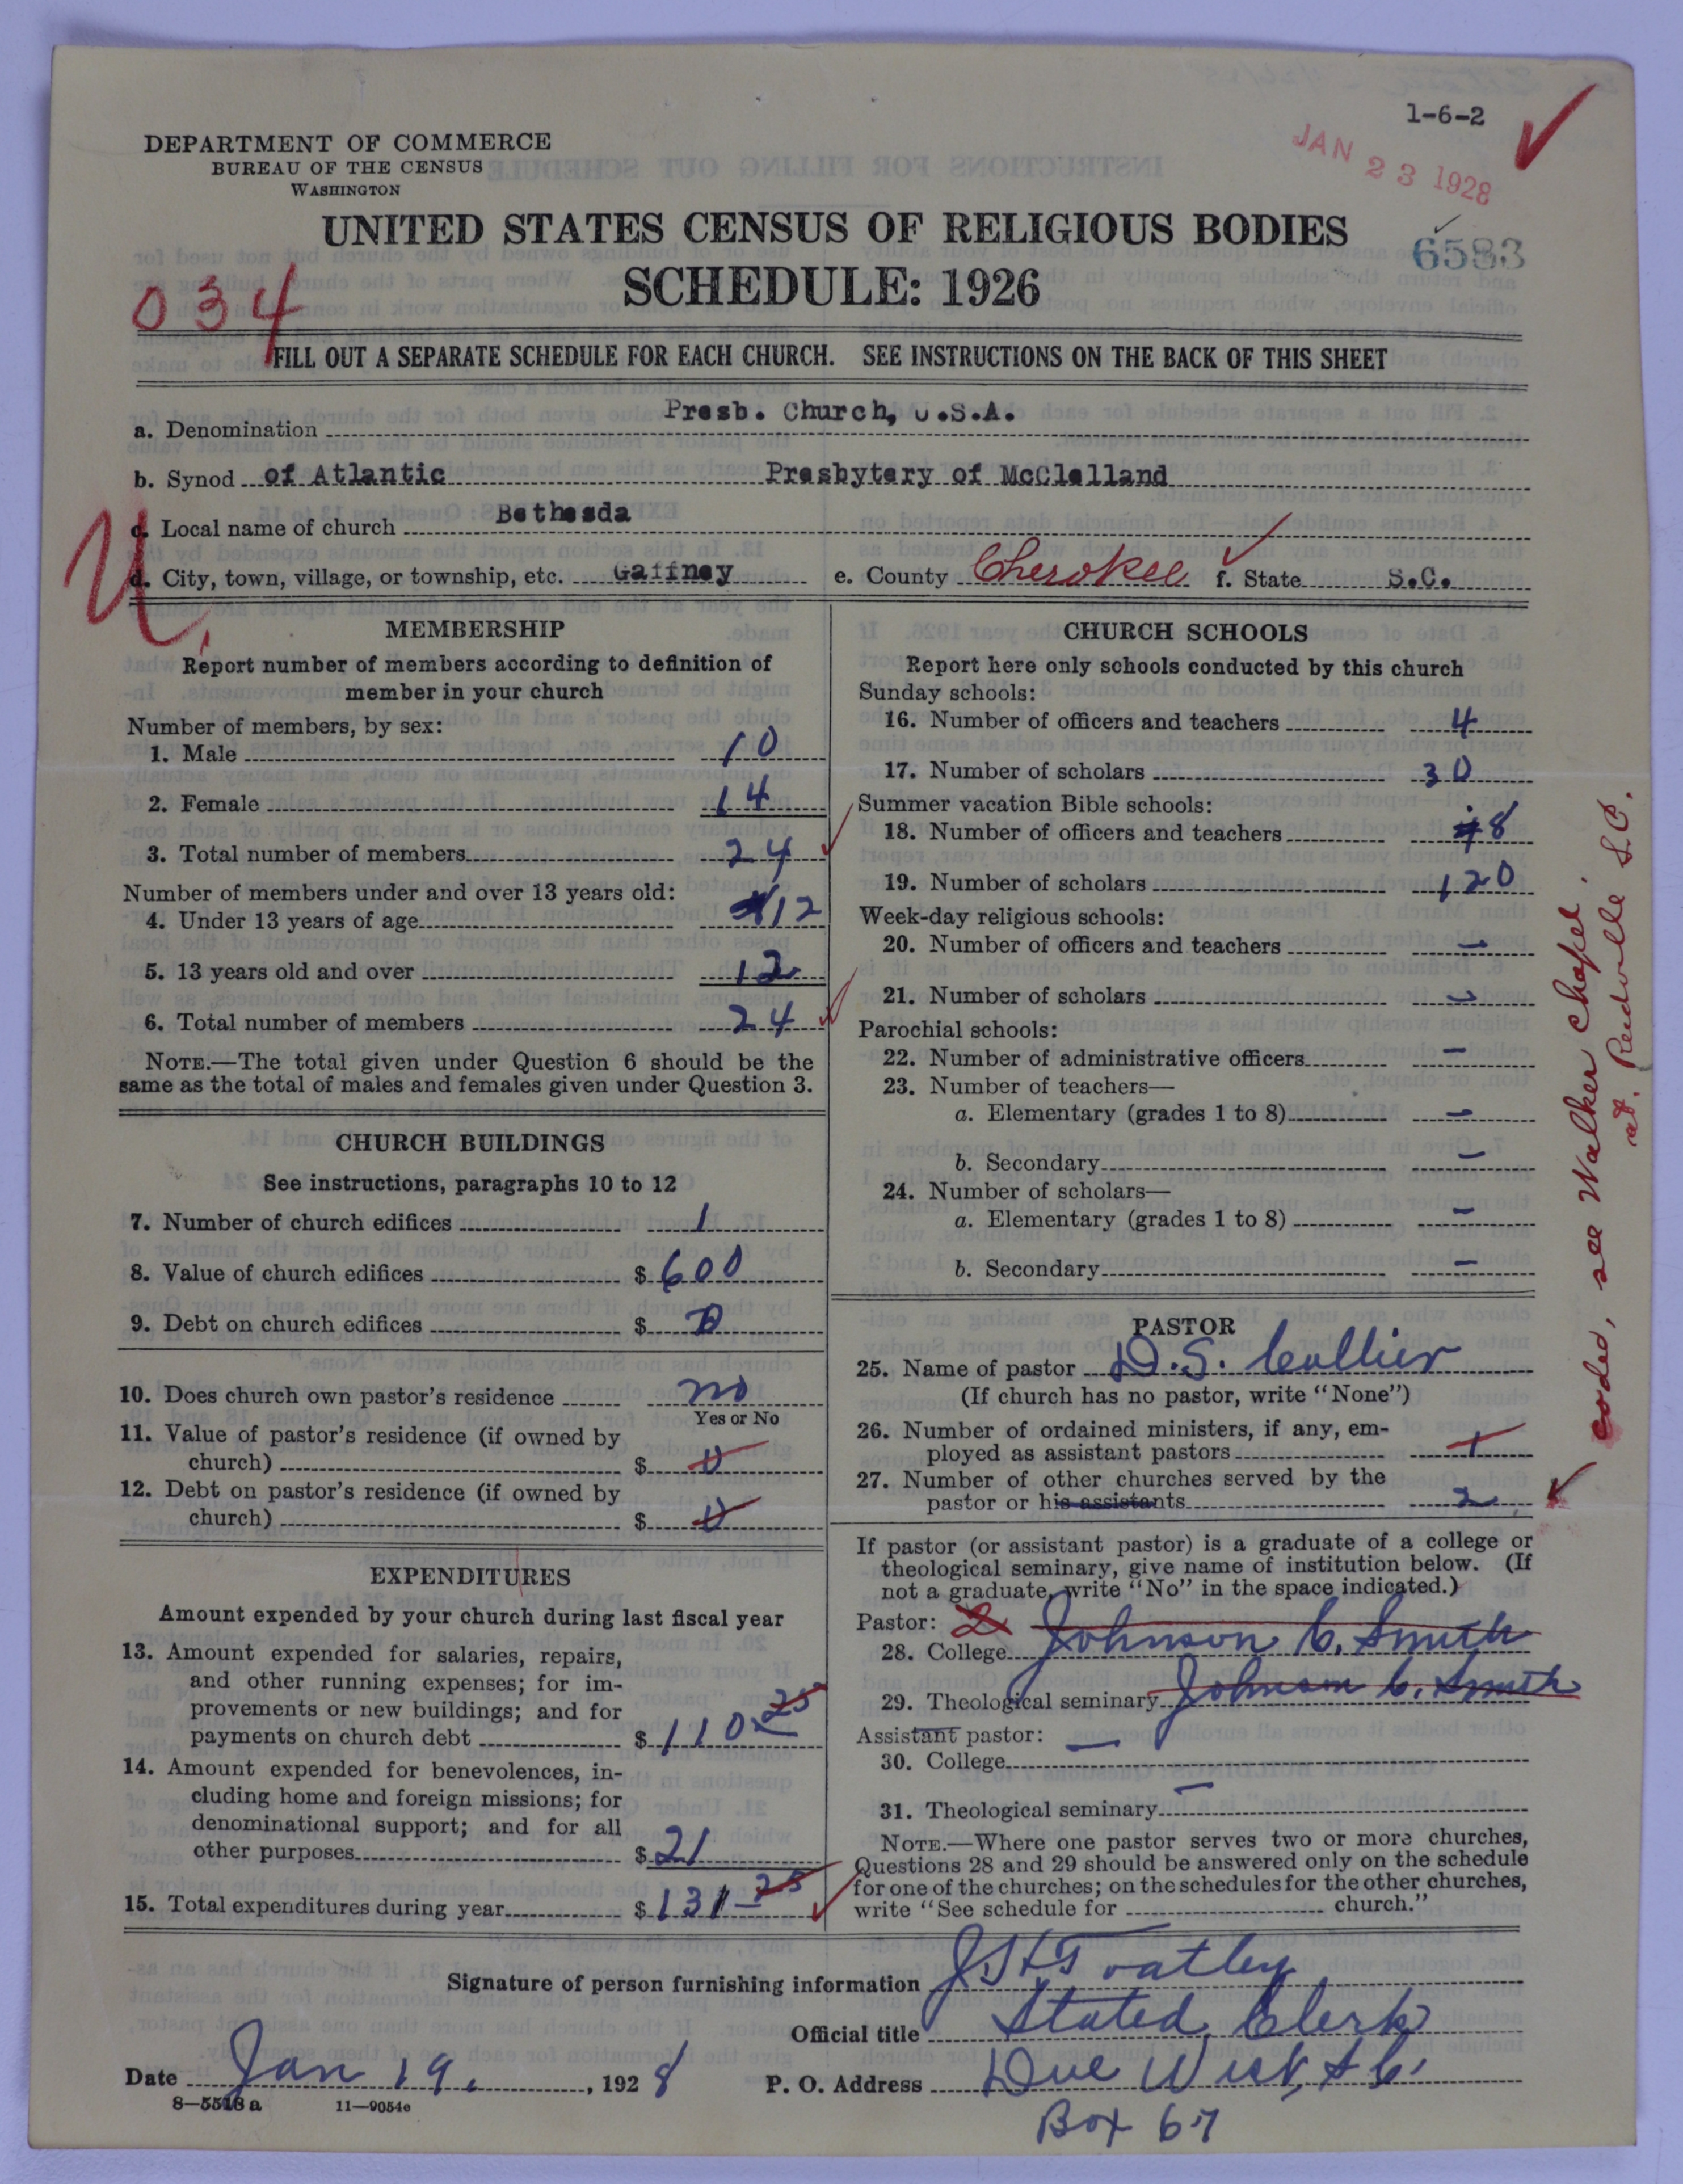 1-6-2
JAN 23 1928
DEPARTMENT OF COMMERCE
BUREAU OF THE CENSUS
WASHINGTON
UNITED STATES CENSUS OF RELIGIOUS BODIES
6583
SCHEDULE: 1926
034
FILL OUT A SEPARATE SCHEDULE FOR EACH CHURCH. SEE INSTRUCTIONS ON THE BACK OF THIS SHEET
a. Denomination Presb. Church, U.S.A.
b. Synod of Atlantic Presbytery of McClelland
c. Local name of church Bethesda
d. City, town, village, or township, etc. Gaffney e. County Cherokee f. State S.C.
U.
MEMBERSHIP
Report number of members according to definition of
member in your church
Number of members, by sex:
1. Male 10
2. Female 14
3. Total number of members 24
Number of members under and over 13 years old:
4. Under 13 years of age 12
5. 13 years old and over 12
6. Total number of members 24
NOTE.—The total given under Question 6 should be the
same as the total of males and females given under Question 3.
CHURCH BUILDINGS
See instructions, paragraphs 10 to 12
7. Number of church edifices 1
8. Value of church edifices $600
9. Debt on church edifices $0
10. Does church own pastor's residence no
Yes or No
11. Value of pastor's residence (if owned by
church) $0
12. Debt on pastor's residence (if owned by
church) $0
EXPENDITURES
Amount expended by your church during last fiscal year
13. Amount expended for salaries, repairs,
and other running expenses; for im-
provements or new buildings; and for
payments on church debt $110.25
14. Amount expended for benevolences, in-
cluding home and foreign missions; for
denominational support; and for all
other purposes $21
15. Total expenditures during year $131.25
CHURCH SCHOOLS
Report here only schools conducted by this church
Sunday schools:
16. Number of officers and teachers 4
17. Number of scholars 30
Summer vacation Bible schools:
18. Number of officers and teachers 8
19. Number of scholars 120
Week-day religious schools:
20. Number of officers and teachers —
21. Number of scholars —
Parochial schools:
22. Number of administrative officers —
23. Number of teachers—
a. Elementary (grades 1 to 8) —
b. Secondary —
24. Number of scholars—
a. Elementary (grades 1 to 8) —
b. Secondary —
PASTOR
25. Name of pastor D.S. Collier
(If church has no pastor, write "None")
26. Number of ordained ministers, if any, em-
ployed as assistant pastors 1
27. Number of other churches served by the
pastor or his assistants 2
If pastor (or assistant pastor) is a graduate of a college or
theological seminary, give name of institution below. (If
not a graduate, write "No" in the space indicated.)
Pastor: 2
28. College Johnson C. Smith
29. Theological seminary Johnson C. Smith
Assistant pastor: —
30. College
31. Theological seminary —
NOTE.—Where one pastor serves two or more churches,
Questions 28 and 29 should be answered only on the schedule
for one of the churches; on the schedules for the other churches,
write "See schedule for church."
coded, see Walker Chapel,
at. Reidville S.C.
Signature of person furnishing information
Official title Stated Clerk
Date Jan 19, 1928 P. O. Address Due West, S.C.
Box 67
8—5518a 11—9054c